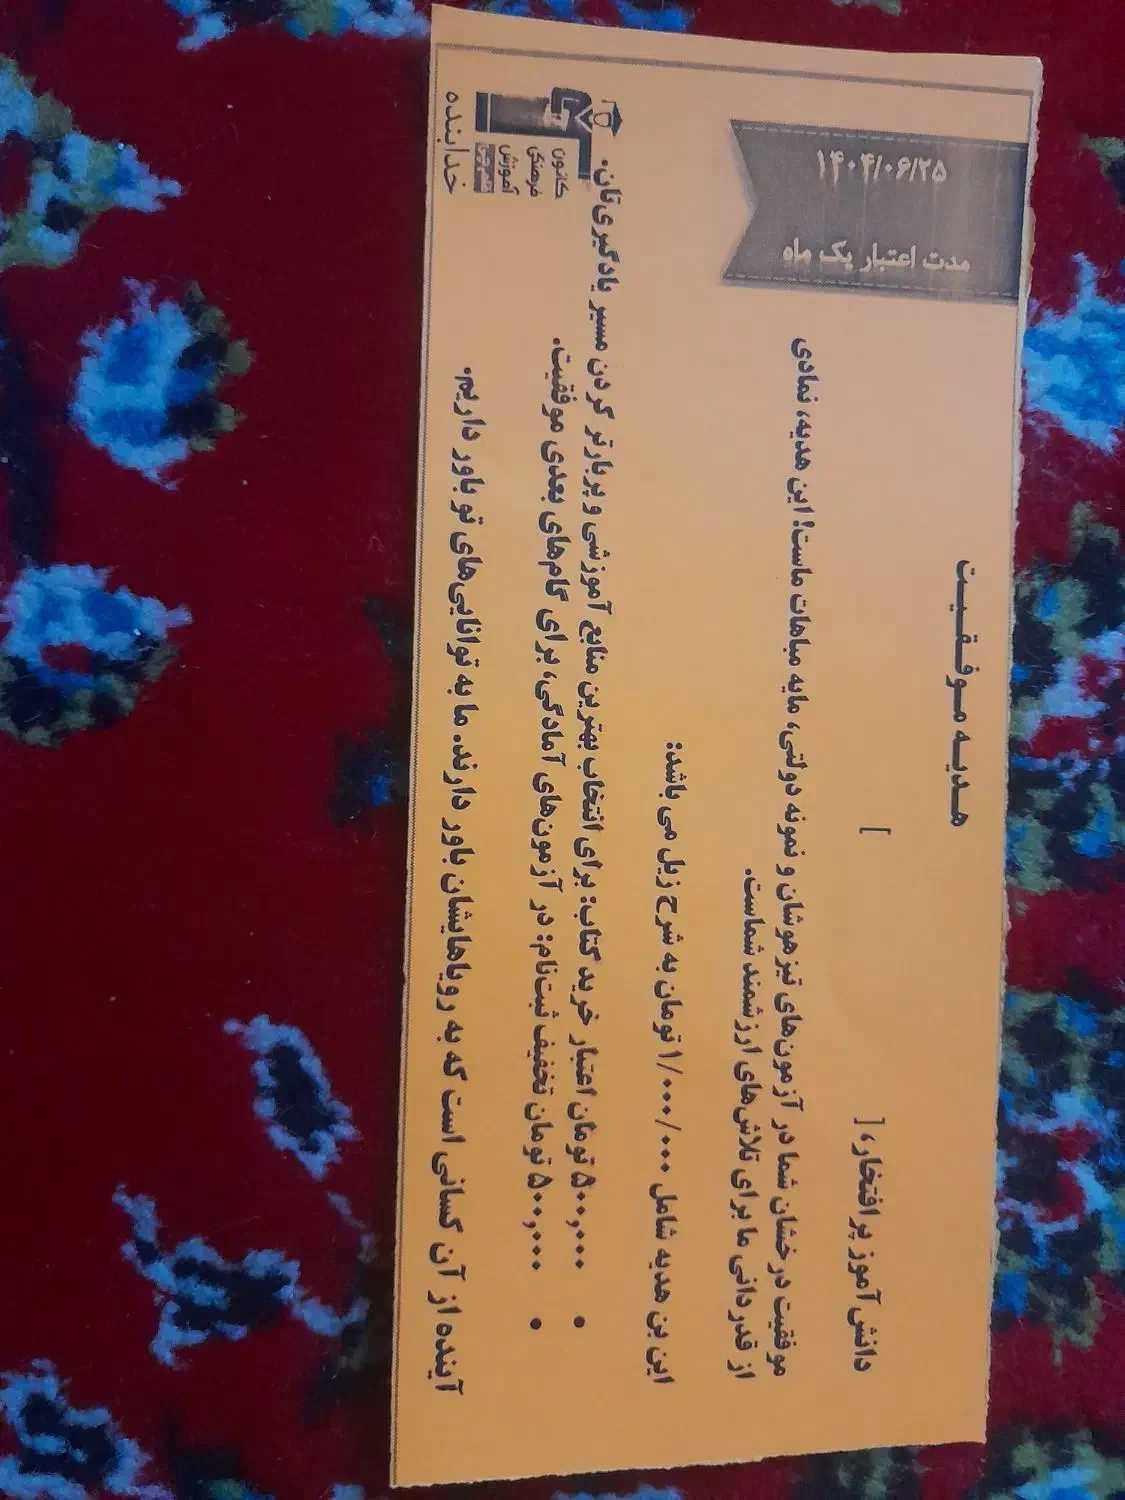 ۱۴۰۴/۰۶/۲۵
مدت اعتبار یک ماه
هـدیـه مـوفـقـیـت
دانش‌آموز پر افتخار، [ ]
موفقیت درخشان شما در آزمون‌های تیزهوشان و نمونه دولتی، مایه مباهات ماست! این هدیه، نمادی
از قدردانی ما برای تلاش‌های ارزشمند شماست.
این بن هدیه شامل ۱/۰۰۰/۰۰۰ تومان به شرح زیل می باشد:
• ۵۰۰,۰۰۰ تومان اعتبار خرید کتاب: برای انتخاب بهترین منابع آموزشی و پربارتر کردن مسیر یادگیری‌تان.
• ۵۰۰,۰۰۰ تومان تخفیف ثبت‌نام: در آزمون‌های آمادگی، برای گام‌های بعدی موفقیت.
آینده از آن کسانی است که به رویاهایشان باور دارند. ما به توانایی‌های تو باور داریم.
کانون
فرهنگی
آموزش
خدابنده